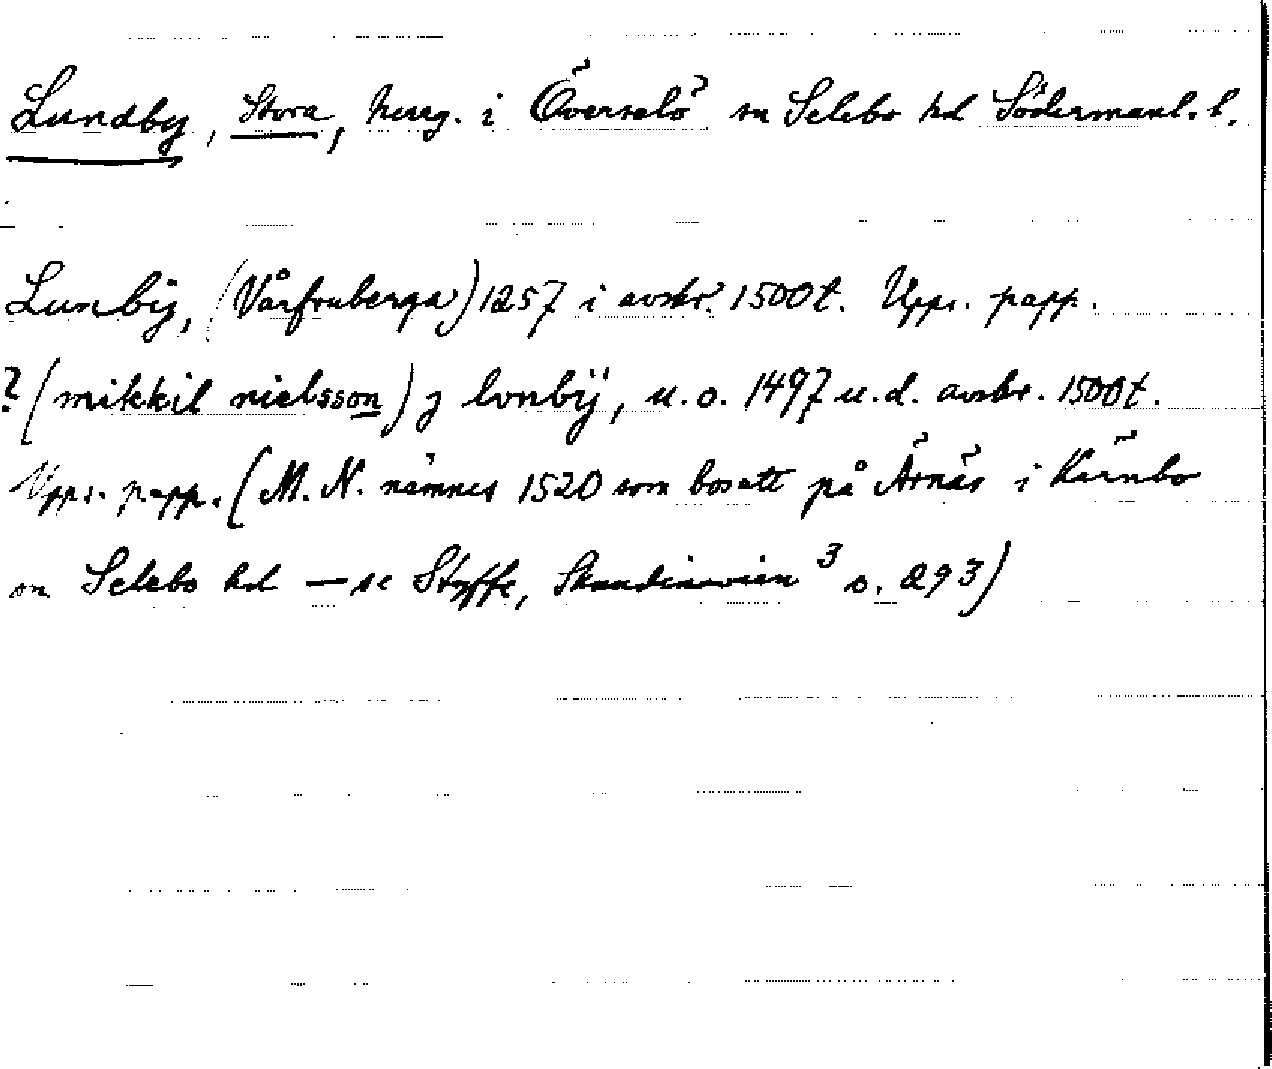 Lundby, Stora, herrg. i Överselö sn Selebo hd Södermanl. l.
Lunbÿ, (Vårfruberga) 1257 i avskr. 1500t. Upps. papp.
? (mikkil nielsson) j lvnbÿ, u.o. 1497 u.d. avskr. 1500t.
Upps. papp. (M. N. nämnes 1520 som bosatt på Ärnäs i Kärnbo
sn Selebo hd — se Styffe, Skandinavien 3 s. 293)